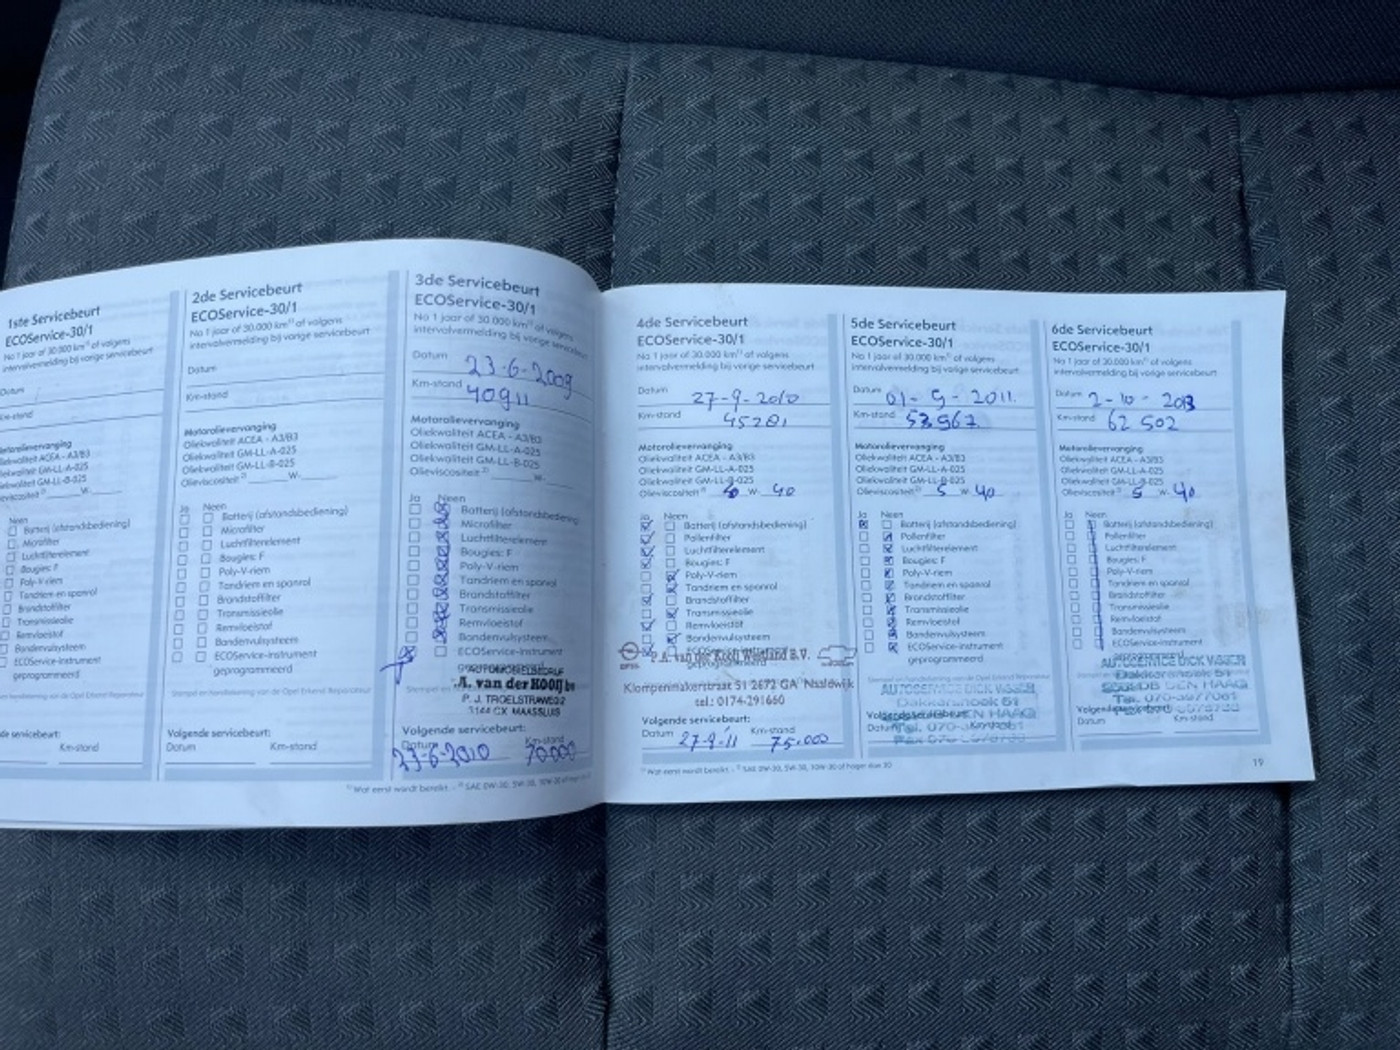 1ste Servicebeurt
ECOService-30/1
Na 1 jaar of 30.000 km¹⁾ of volgens
intervalvermelding bij vorige servicebeurt
Datum
Km-stand
Motorolievervanging
Oliekwaliteit ACEA - A3/B3
Oliekwaliteit GM-LL-A-025
Oliekwaliteit GM-LL-B-025
Olieviscositeit ²⁾ W-
Neen
Batterij (afstandsbediening)
Microfilter
Luchtfilterelement
Bougies: F
Poly-V-riem
Tandriem en spanrol
Brandstoffilter
Transmissieolie
Remvloeistof
Bandenvulsysteem
ECOService-instrument
Km-stand
2de Servicebeurt
ECOService-30/1
Na 1 jaar of 30.000 km¹⁾ of volgens
intervalvermelding bij vorige servicebeurt
Datum
Km-stand
Motorolievervanging
Oliekwaliteit ACEA - A3/B3
Oliekwaliteit GM-LL-A-025
Oliekwaliteit GM-LL-B-025
Olieviscositeit ²⁾ W-
Ja Neen
Batterij (afstandsbediening)
Microfilter
Luchtfilterelement
Bougies: F
Poly-V-riem
Tandriem en spanrol
Brandstoffilter
Transmissieolie
Remvloeistof
Bandenvulsysteem
ECOService-instrument
geprogrammeerd
Stempel en handtekening van de Opel Erkend Reparateur
Volgende servicebeurt:
Datum Km-stand
3de Servicebeurt
ECOService-30/1
Na 1 jaar of 30.000 km¹⁾ of volgens
intervalvermelding bij vorige servicebeurt
Datum 23-6-2009
Km-stand 40911
Motorolievervanging
Oliekwaliteit ACEA - A3/B3
Oliekwaliteit GM-LL-A-025
Oliekwaliteit GM-LL-B-025
Olieviscositeit ²⁾ W-
Ja Neen
Batterij (afstandsbediening)
Microfilter
Luchtfilterelement
Bougies: F
Poly-V-riem
Tandriem en spanrol
Brandstoffilter
Transmissieolie
Remvloeistof
Bandenvulsysteem
ECOService-instrument
AUTOMOBIELBEDRIJF
A. van der KOOIJ bv
P. J. TROELSTRAWEG 2
3144 CX MAASSLUIS
Volgende servicebeurt:
Datum Km-stand
23-6-2010 70000
¹⁾ Wat eerst wordt bereikt. - ²⁾ SAE 0W-30, 5W-30, 10W-30 of hoger
4de Servicebeurt
ECOService-30/1
Na 1 jaar of 30.000 km¹⁾ of volgens
intervalvermelding bij vorige servicebeurt
Datum 27-9-2010
Km-stand 45281
Motorolievervanging
Oliekwaliteit ACEA - A3/B3
Oliekwaliteit GM-LL-A-025
Oliekwaliteit GM-LL-B-025
Olieviscositeit ²⁾ W- 40
Ja Neen
Batterij (afstandsbediening)
Pollenfilter
Luchtfilterelement
Bougies: F
Poly-V-riem
Tandriem en spanrol
Brandstoffilter
Transmissieolie
Remvloeistof
Bandenvulsysteem
geprogrammeerd
P.A. van der Kooij Westland B.V.
Klompenmakerstraat 51 2672 GA Naaldwijk
tel.: 0174-291660
Volgende servicebeurt:
Datum 27-9-11 Km-stand 75.000
¹⁾ Wat eerst wordt bereikt. - ²⁾ SAE 0W-30, 5W-30, 10W-30 of hoger
5de Servicebeurt
ECOService-30/1
Na 1 jaar of 30.000 km¹⁾ of volgens
intervalvermelding bij vorige servicebeurt
Datum 01-9-2011
Km-stand 53967
Motorolievervanging
Oliekwaliteit ACEA - A3/B3
Oliekwaliteit GM-LL-A-025
Oliekwaliteit GM-LL-B-025
Olieviscositeit ²⁾ 5 W- 40
Ja Neen
Batterij (afstandsbediening)
Pollenfilter
Luchtfilterelement
Bougies: F
Poly-V-riem
Tandriem en spanrol
Brandstoffilter
Transmissieolie
Remvloeistof
Bandenvulsysteem
ECOService-instrument
geprogrammeerd
AUTOSERVICE DICK VISSER
Dakkershoek 61
DEN HAAG
Volgende servicebeurt
Datum
6de Servicebeurt
ECOService-30/1
Na 1 jaar of 30.000 km¹⁾ of volgens
intervalvermelding bij vorige servicebeurt
Datum 2-10-2013
Km-stand 62502
Motorolievervanging
Oliekwaliteit ACEA - A3/B3
Oliekwaliteit GM-LL-A-025
Oliekwaliteit GM-LL-B-025
Olieviscositeit ²⁾ 5 W- 40
Ja Neen
Batterij (afstandsbediening)
Pollenfilter
Luchtfilterelement
Bougies: F
Poly-V-riem
Tandriem en spanrol
Brandstoffilter
Transmissieolie
Remvloeistof
Bandenvulsysteem
ECOService-instrument
AUTOSERVICE DICK VISSER
Dakkershoek 61
DEN HAAG
Datum Km-stand
19